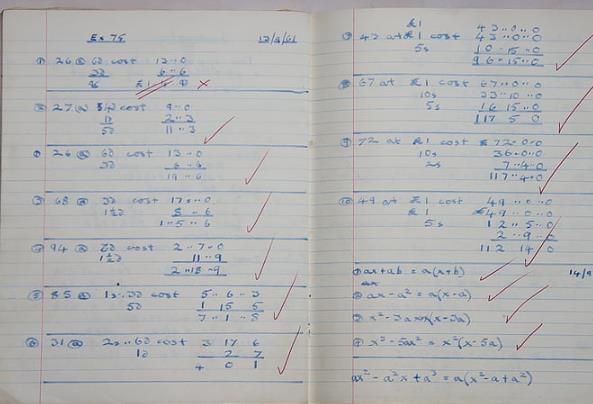 Ex 75 12/9/61
① 26 @ 6d cost 13..0
3d 6..6
9d £1 ..
② 27 @ 4d cost 9..0
1d 2..3
5d 11..3
26 @ 6d cost 13..0
3d 6..6
19..6
③ 68 @ 3d cost 17..0
1½d 8..6
1..5..6
④ 94 @ 6d cost 2..7..0
1½d 11..9
2..18..9
⑤ 85 @ 1s..3d cost 5..6..3
5d 1 15 5
7..1..8
⑥ 31 @ 2s..6d cost 3 17 6
1d 2 7
4 0 1
£1 43..0..0
⑦ 43 at £1 cost 43..0..0
5s 10..15..0
96..15..0
⑧ 67 at £1 cost 67..0..0
10s 33..10..0
5s 16 15..0
117 5 0
⑨ 72 at £1 cost £72..0..0
10s 36..0..0
2s 7..4..0
117..4..0
⑩ 49 at £1 cost 49..0..0
£1 49..0..0
5s 12..5..0
2..9..0
112 14 0
① ax+ab = a(x+b) 14/9
② ax-a² = a(x-a)
③ x²-3ax x(x-3a)
④ x³-5ax² = x²(x-5a)
ax²-a²x+a³ = a(x²-a+a²)